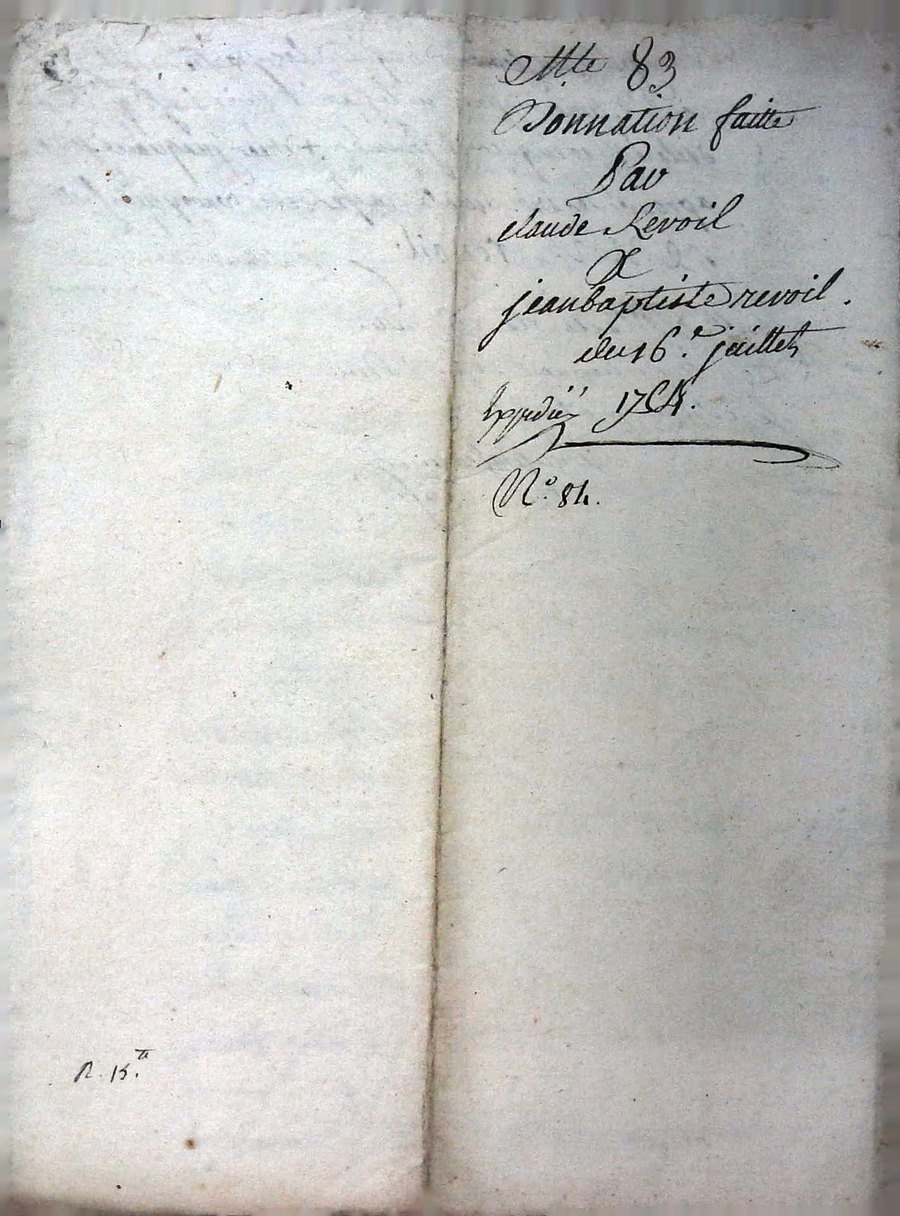 Mte 83
Donnation faitte
Par
claude Revoil
A
jeanbaptiste revoil.
du 16.e juillet
Expediéé 1764.
N.o 84.
R. 15.tt